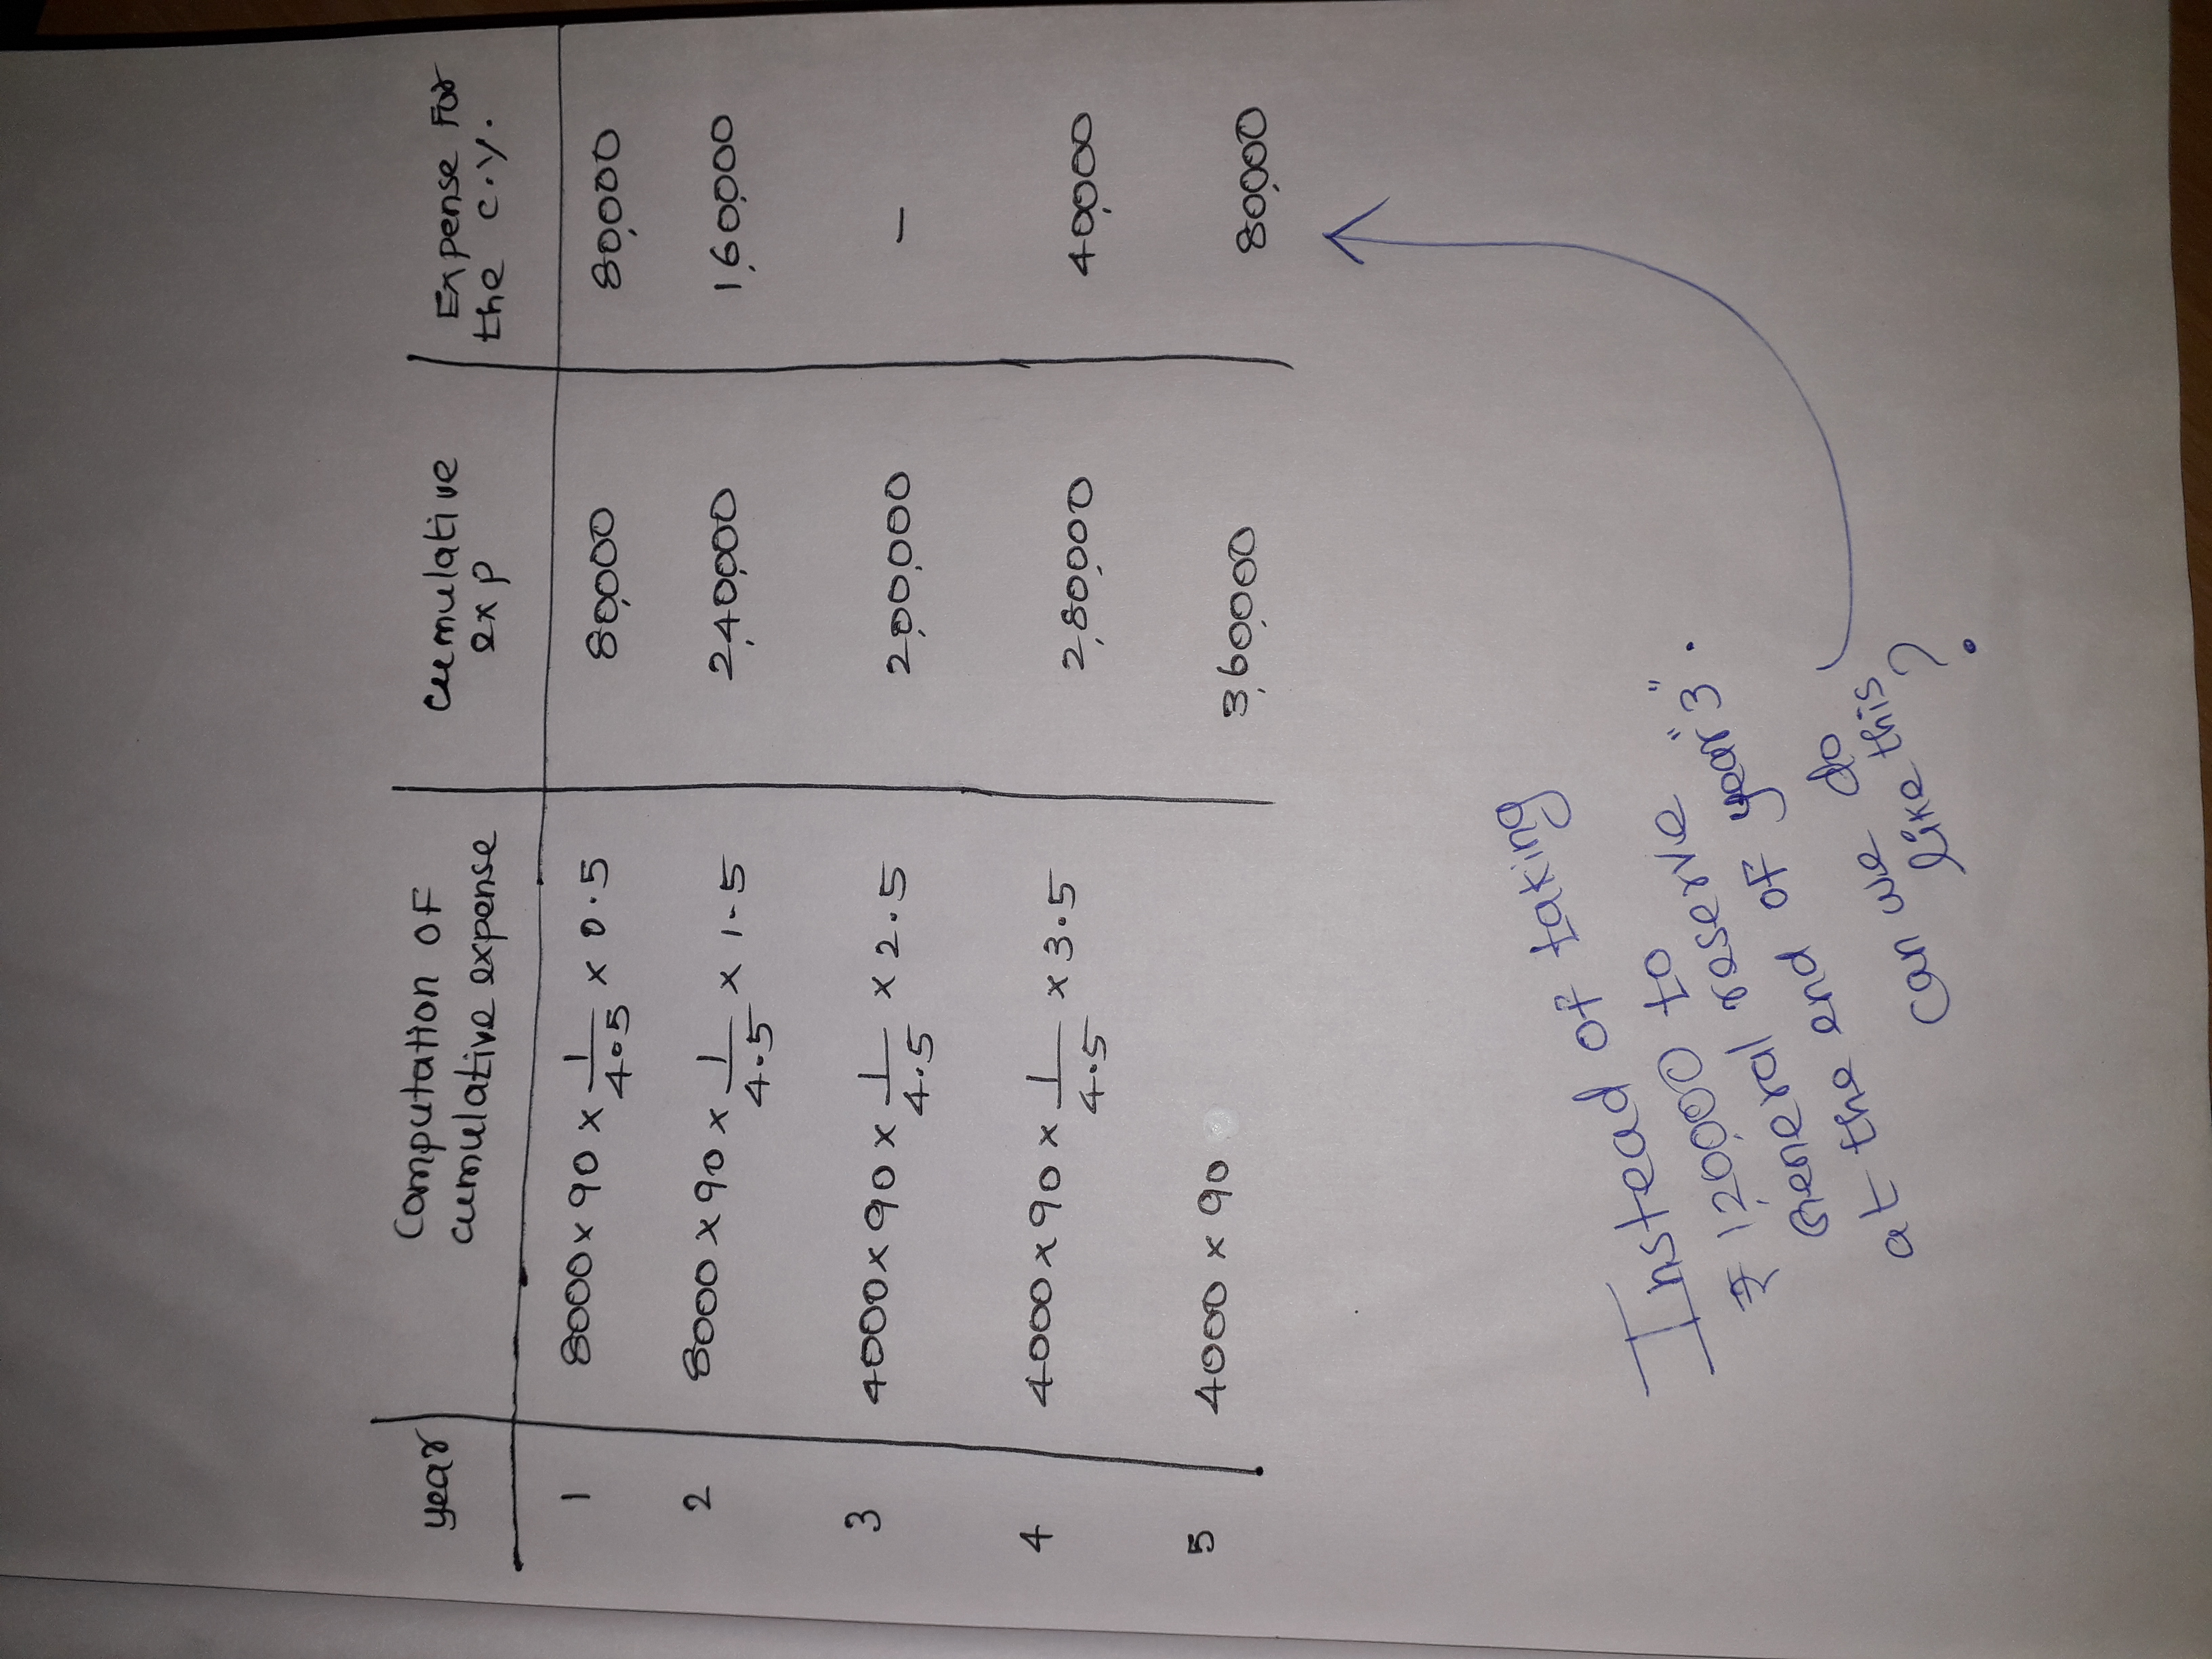 year | Computation OF cumulative expense | cumulative exp | Expense For the c.y.
1 | 8000 x 90 x 1/4.5 x 0.5 | 80,000 | 80,000
2 | 8000 x 90 x 1/4.5 x 1.5 | 2,40,000 | 1,60,000
3 | 4000 x 90 x 1/4.5 x 2.5 | 2,00,000 | –
4 | 4000 x 90 x 1/4.5 x 3.5 | 2,80,000 | 40,000
5 | 4000 x 90 | 3,60,000 | 80,000
Instead of taking
₹ 1,20,000 to
General reserve
at the end of year "3".
can we do
like this?